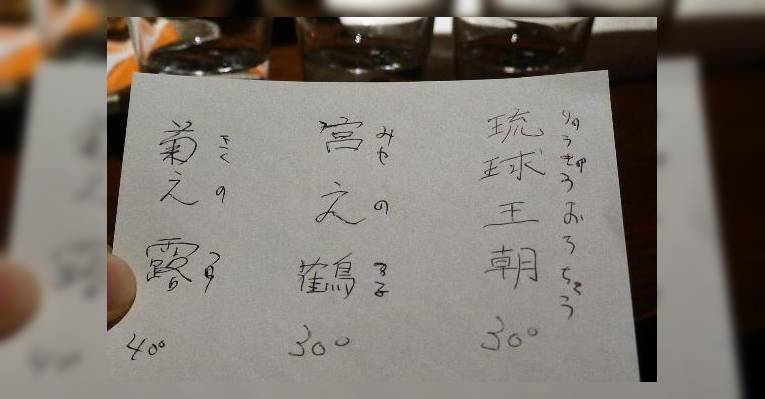 琉球王朝
りゅうきゅうおうちょう
30°
宮之鶴
みやのつる
30°
菊之露
きくのつゆ
40°